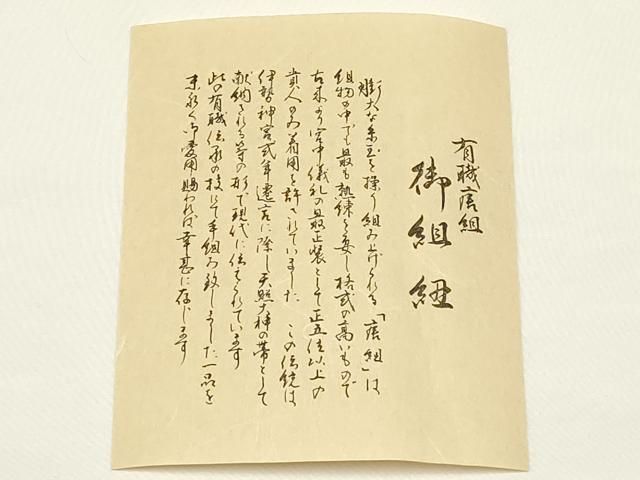 有職唐組
御組紐
厖大な糸玉を操り組み上げられる「唐組」は
組物の中でも最も熟練を要し格式の高いもので
古来より宮中儀礼の最正装として正五位以上の
貴人のみ着用を許されていました この伝統は
伊勢神宮式年遷宮に際し天照大神の帯として
献納される等の形で現代に伝えられています
此の有職伝承の技にて手組み致しました一品を
末永く御愛用賜われば幸甚に存じます